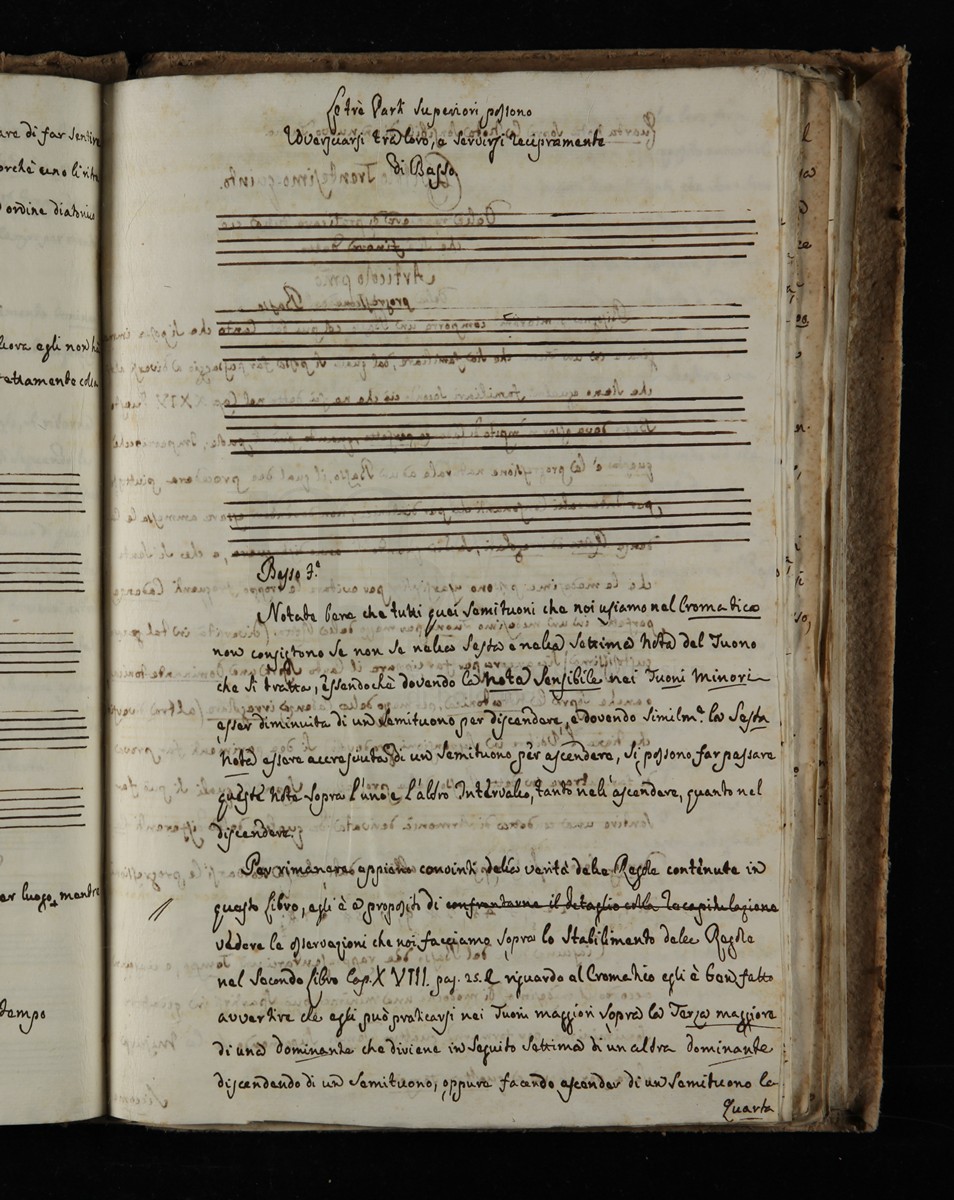 are di far sentire
perchè uno li ritr
ordine diatonic
tiova egli non hà
rettamente colla
er luogo, mentre
tempo
Le trè Parti superiori possono
Roversciarsi trà loro, e servirsi reciprocamente
di Basso
Basso 3.º
Notate bene che tutti quei semituoni che noi usiamo nel Cromatico
non consistono se non se nella Sesta e nella Settima Nota del Tuono
che si tratta, essendochè dovendo la Nota Sensibile nei Tuoni Minori
esser diminuita di un semituono per discendere, e dovendo similm.e la Sesta
Nota essere accresciuta di un Semituono per ascendere, si possono far passare
queste Note sopra l'uno e l'altro Intervallo, tanto nell'ascendere, quanto nel
discendere.
Per rimanere appieno convinti della verità delle Regole contenute in
questo Libro, egli è a proposito di confrontarne il detaglio colla recapitulazione
vedere le osservazioni che noi facciamo sopra lo Stabilimento delle Regole
nel Secondo Libro Cap. XVIII. pag. 25. E riguardo al Cromatico egli è ben fatto
avvertire che egli può praticarsi nei Tuoni maggiori sopra la Terza maggiore
di una dominante che diviene in seguito settima di un altra dominante
discendendo di un semituono, oppure facendo ascender di un semituono la
Quarta